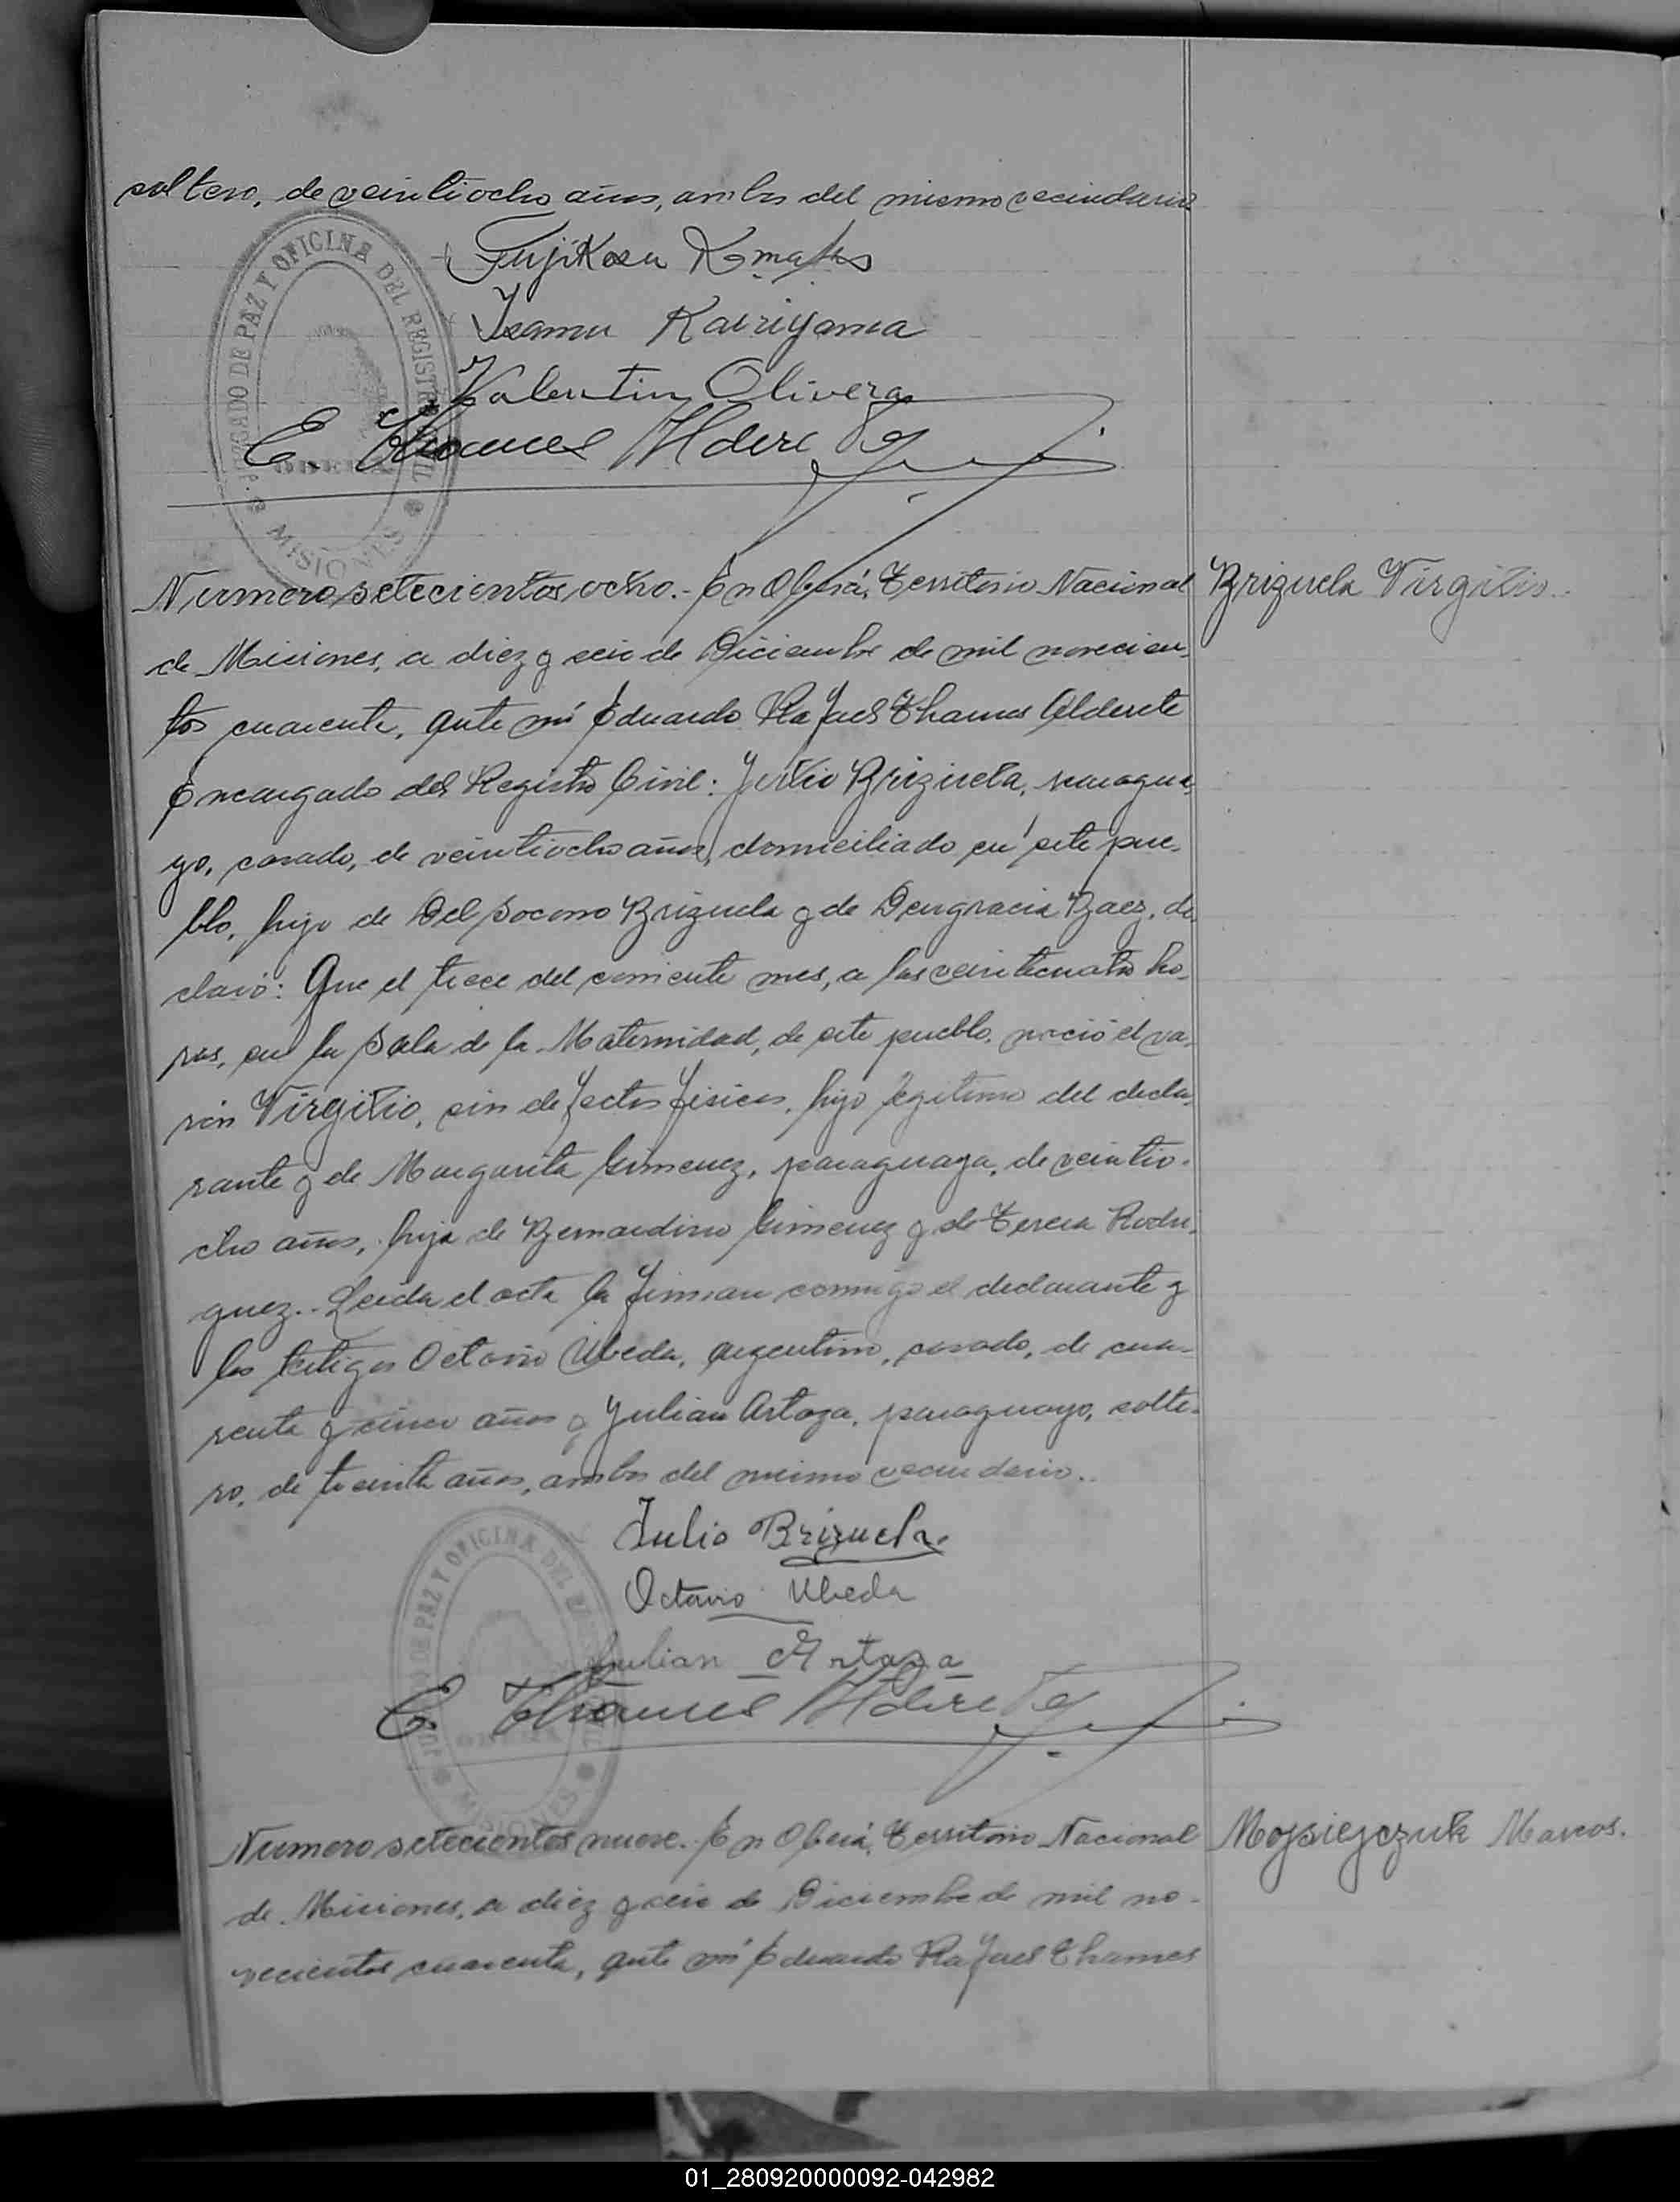 soltero, de veintiocho años, ambos del mismo vecindario
Valentin Olivera
E. Thames Alderete
JUZGADO DE PAZ Y OFICINA DEL REGISTRO CIVIL
MISIONES
Numero setecientos ocho.- En Oberá, Territorio Nacional
Brizuela Virgilio..
de Misiones, a diez y seis de Diciembre de mil novecien-
tos cuarenta, ante mi Eduardo Rafael Thames Alderete
Encargado del Registro Civil: Julio Brizuela, paragua-
yo, casado, de veintiocho años, domiciliado en este pue-
blo, hijo de Del Socorro Brizuela y de Deugracia Baez, de-
claró: Que el trece del corriente mes, a las veinticuatro ho-
ras, en la Sala de la Maternidad, de este pueblo, nació el va-
rón Virgilio, sin defectos fisicos, hijo legitimo del decla-
rante y de Margarita Gimenez, paraguaya, de veintio-
cho años, hija de Bernardino Gimenez y de Teresa Rodri-
guez.. Leida el acta la firman conmigo el declarante y
los testigos Octavio Ubeda, argentino, casado, de cua-
renta y cinco años y Julian Artaza, paraguayo, solte-
ro, de treinta años, ambos del mismo vecindario..
Julio Brizuela.
Octavio Ubeda
Julian Artaza
E. Thames Alderete
MISIONES
Numero setecientos nueve.- En Oberá, Territorio Nacional
Mojsiejczuk Marcos.
de Misiones, a diez y seis de Diciembre de mil no-
vecientos cuarenta, ante mi Eduardo Rafael Thames
01_280920000092-042982